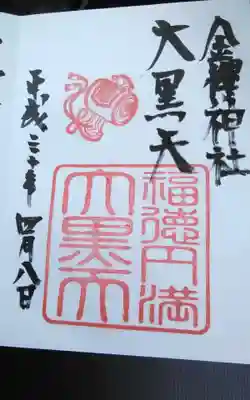 金櫻神社
大黒天
平成三十年 四月八日
福徳円満
大黒天